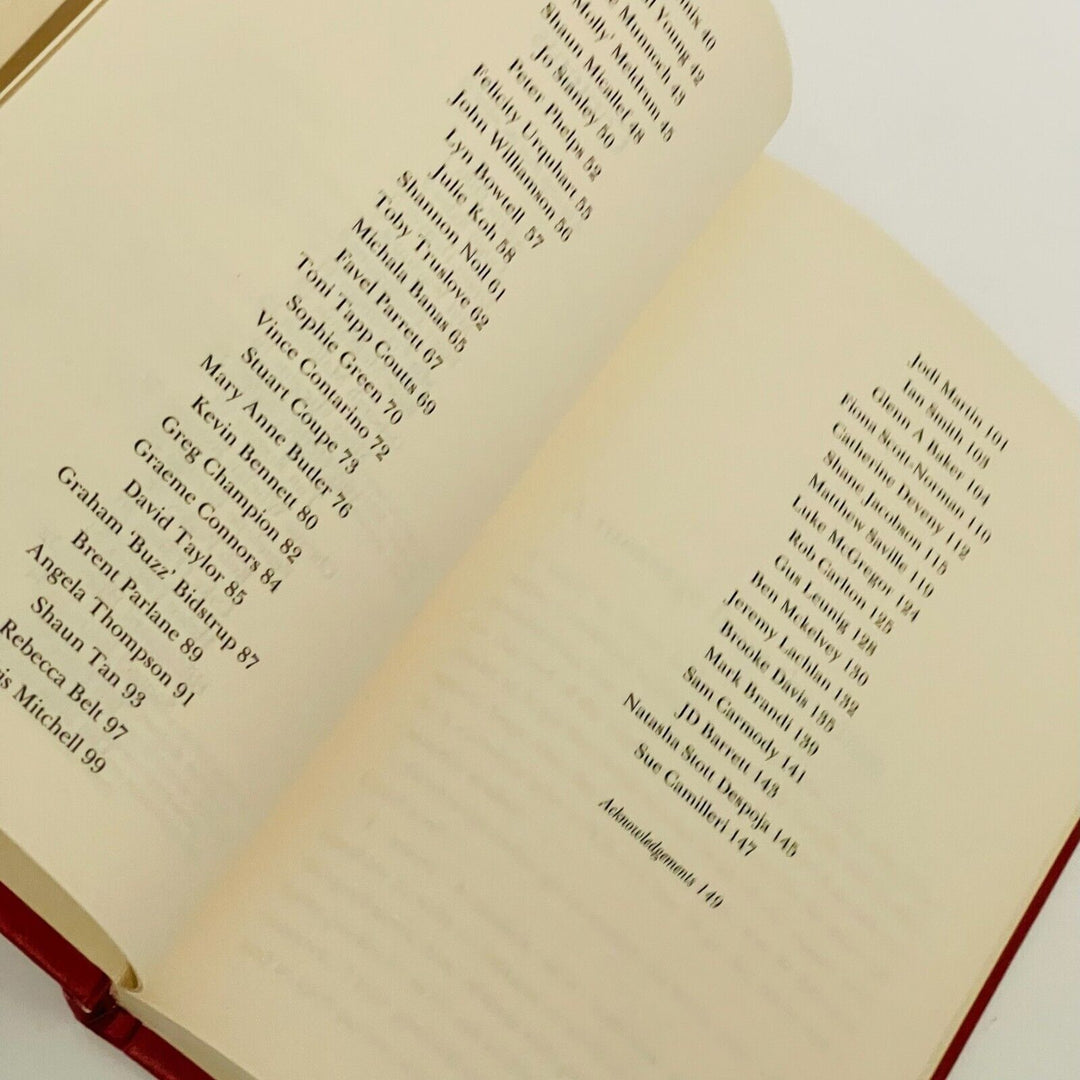 40
Young 42
Munnoch 43
Molly' Meldrum 45
Shaun Micallef 48
Jo Stanley 50
Peter Phelps 52
Felicity Urquhart 55
John Williamson 56
Lyn Bowtell 57
Julie Koh 58
Shannon Noll 61
Toby Truslove 62
Michala Banas 65
Favel Parrett 67
Toni Tapp Coutts 69
Sophie Green 70
Vince Contarino 72
Stuart Coupe 73
Mary Anne Butler 76
Kevin Bennett 80
Greg Champion 82
Graeme Connors 84
David Taylor 85
Graham 'Buzz' Bidstrup 87
Brent Parlane 89
Angela Thompson 91
Shaun Tan 93
Rebecca Belt 97
is Mitchell 99
Jodi Martin 101
Ian Smith 103
Glenn A Baker 104
Fiona Scott-Norman 110
Catherine Deveny 112
Shane Jacobson 115
Matthew Saville 119
Luke McGregor 124
Rob Carlton 125
Gus Leunig 128
Ben Mckelvey 130
Jeremy Lachlan 132
Brooke Davis 135
Mark Brandi 139
Sam Carmody 141
JD Barrett 143
Natasha Stott Despoja 145
Sue Camilleri 147
Acknowledgements 149